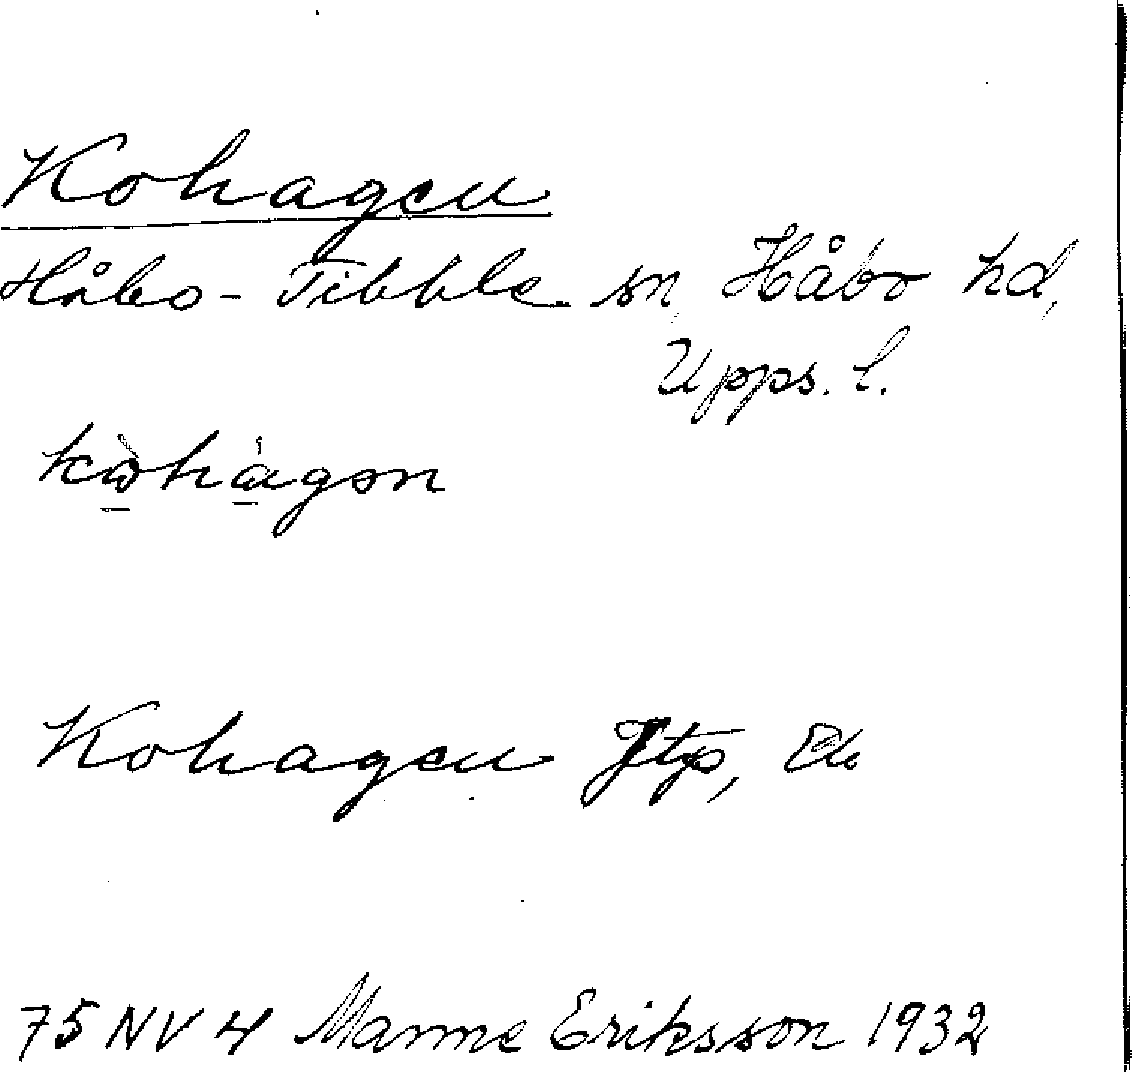 Kohagen
Håbo-Tibble sn, Håbo hd,
Upps. l.
kòhágən
Kohagen Jtp, Ek
75 NV 4 Manne Eriksson 1932